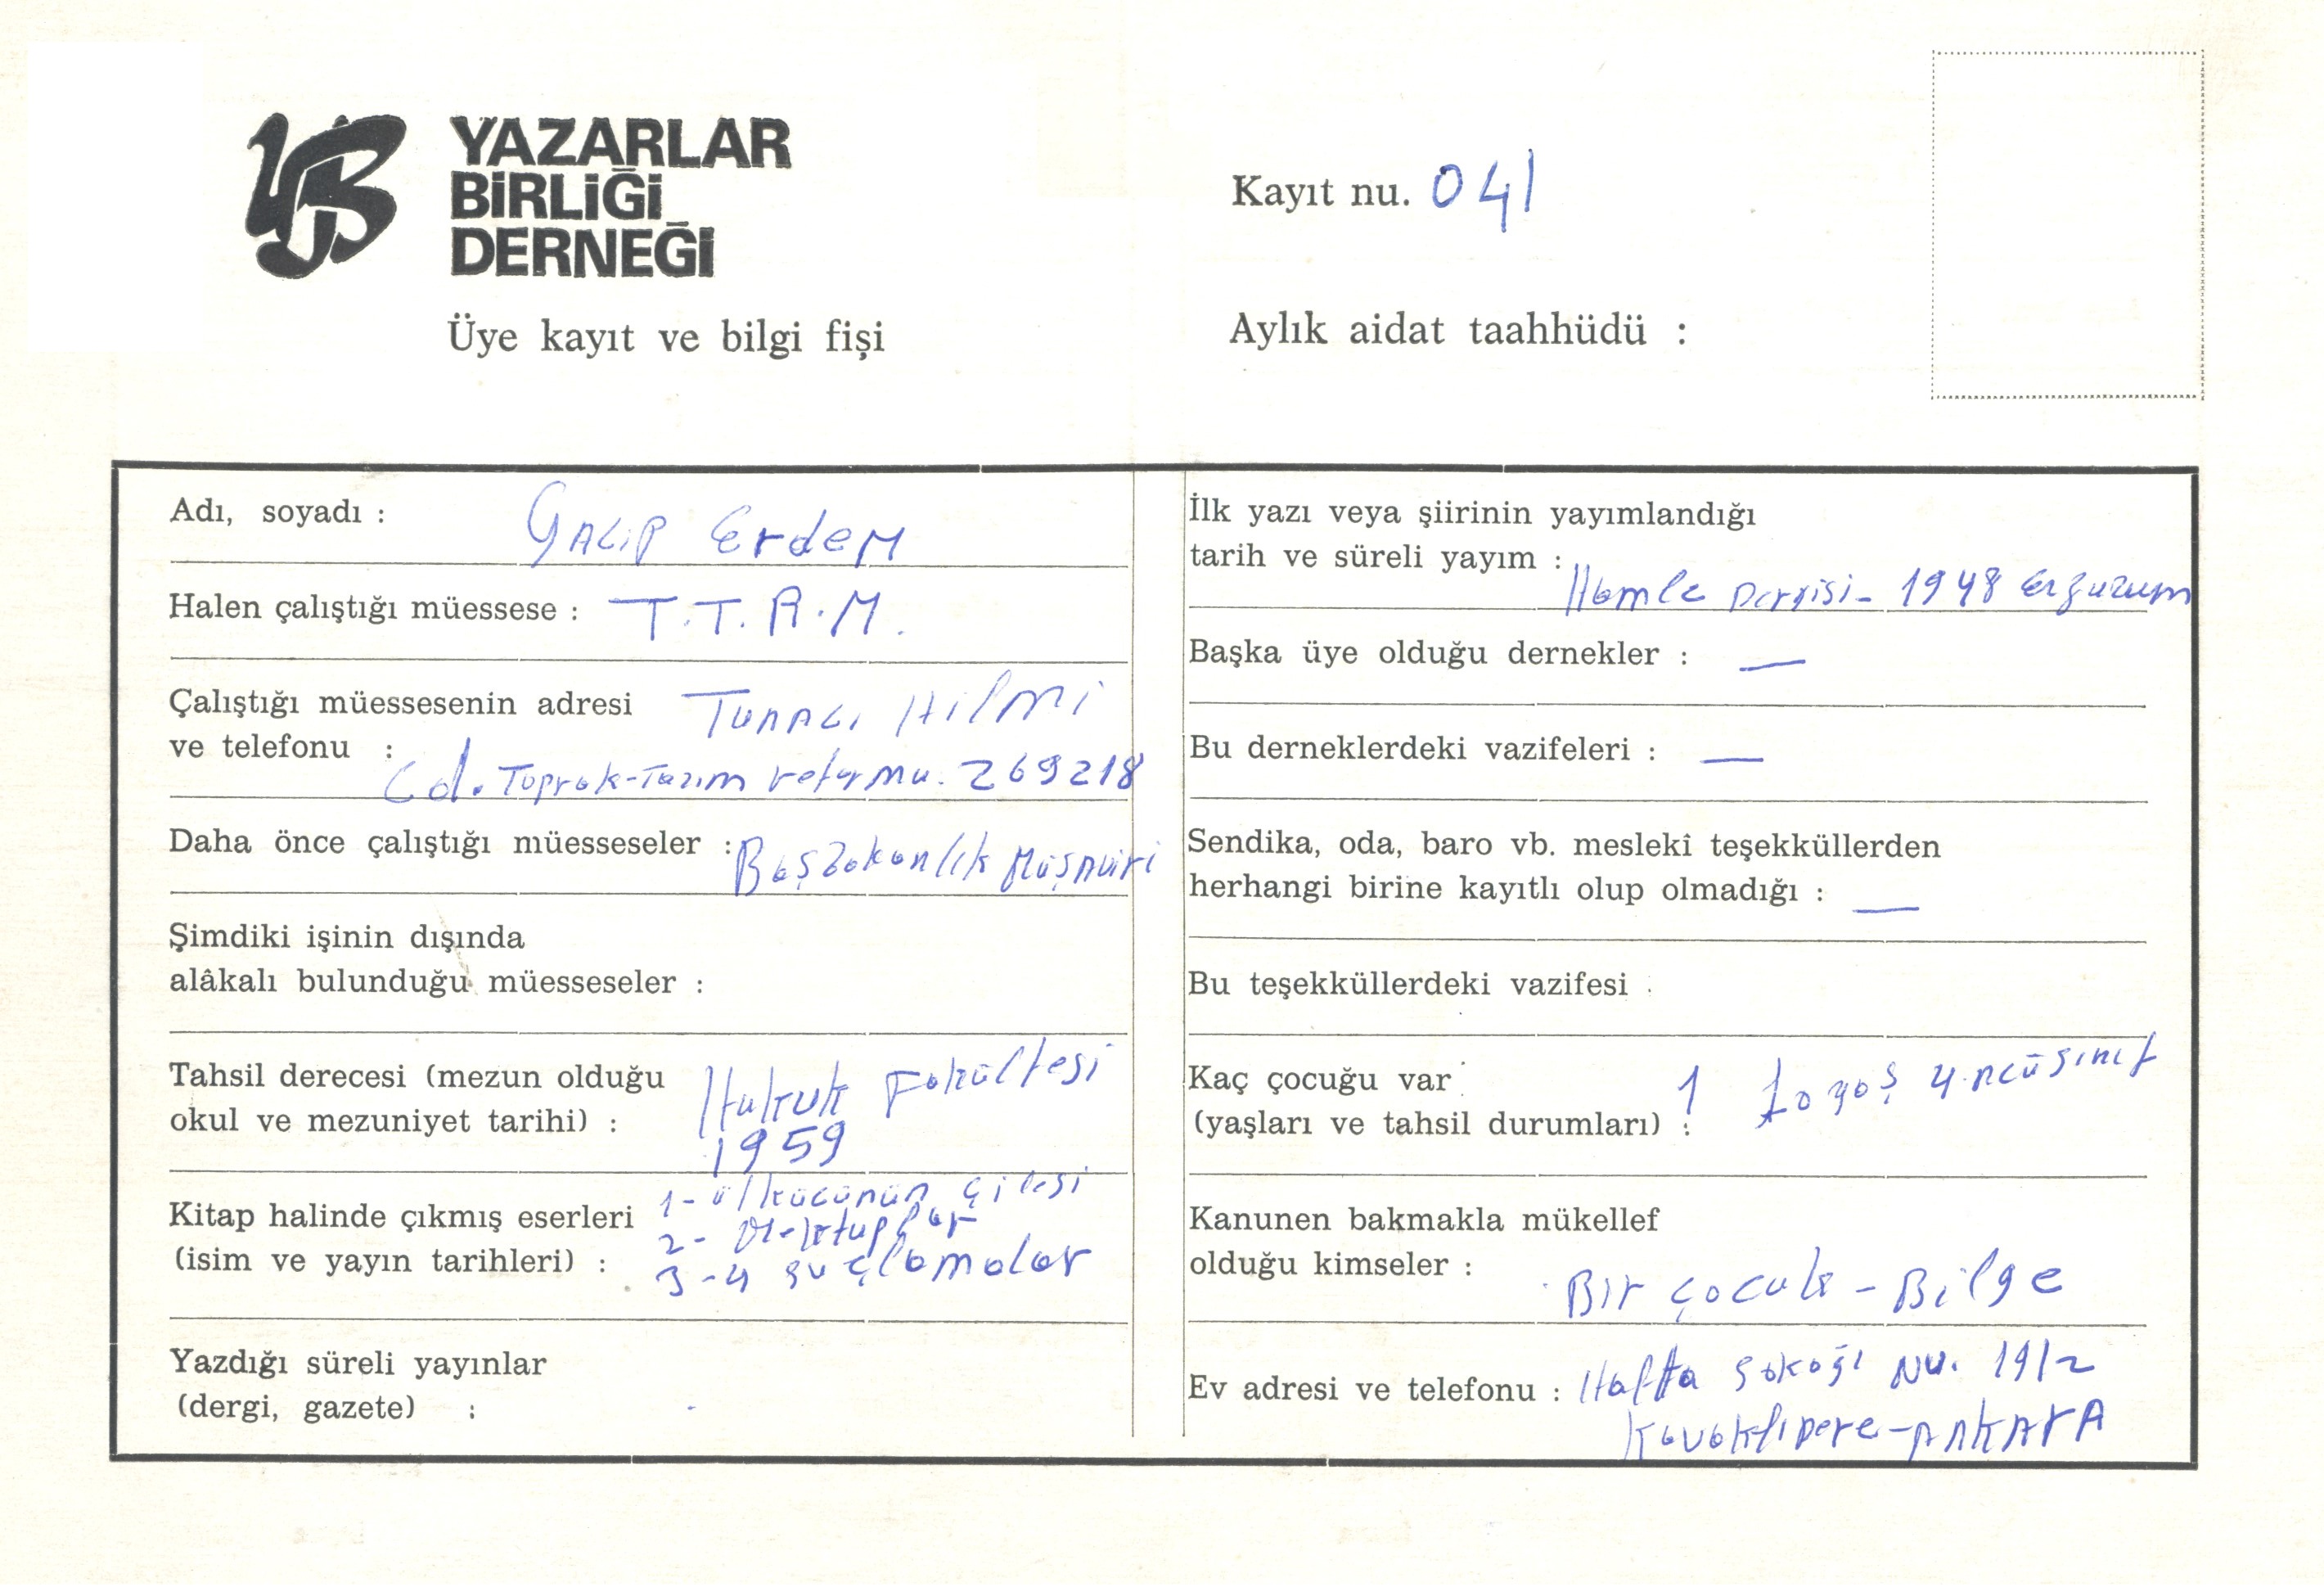 YAZARLAR
BİRLİĞİ
DERNEĞİ
Üye kayıt ve bilgi fişi
Kayıt nu. 041
Aylık aidat taahhüdü :
Adı, soyadı : Galip Erdem
Halen çalıştığı müessese : T.T.R.M.
Çalıştığı müessesenin adresi Tunalı Hilmi
ve telefonu : Cd. Toprak-Tarım reformu. 269218
Daha önce çalıştığı müesseseler : Başbakanlık Müşaviri
Şimdiki işinin dışında
alâkalı bulunduğu müesseseler :
Tahsil derecesi (mezun olduğu Hukuk Fakültesi
okul ve mezuniyet tarihi) : 1959
Kitap halinde çıkmış eserleri 1- ülkücünün çilesi
2- Mektuplar
(isim ve yayın tarihleri) : 3-4 suçlamalar
Yazdığı süreli yayınlar
(dergi, gazete) :
İlk yazı veya şiirinin yayımlandığı
tarih ve süreli yayım : Hamle Dergisi- 1948 Erzurum
Başka üye olduğu dernekler : —
Bu derneklerdeki vazifeleri : —
Sendika, oda, baro vb. meslekî teşekküllerden
herhangi birine kayıtlı olup olmadığı : —
Bu teşekküllerdeki vazifesi :
Kaç çocuğu var 1 10 yaş 4.ncü sınıf
(yaşları ve tahsil durumları) :
Kanunen bakmakla mükellef
olduğu kimseler : Bir çocuk - Bilge
Ev adresi ve telefonu : Hafta sokağı Nu. 19/2
Kavaklıdere-ANKARA